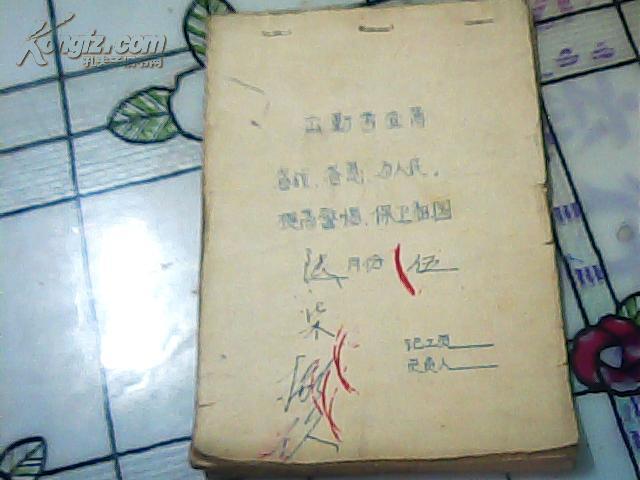 Kongfz.com
孔夫子旧书网
出勤考查簿
备战、备荒、为人民。
提高警惕、保卫祖国
陆月份 伍
柴
记工员
负责人